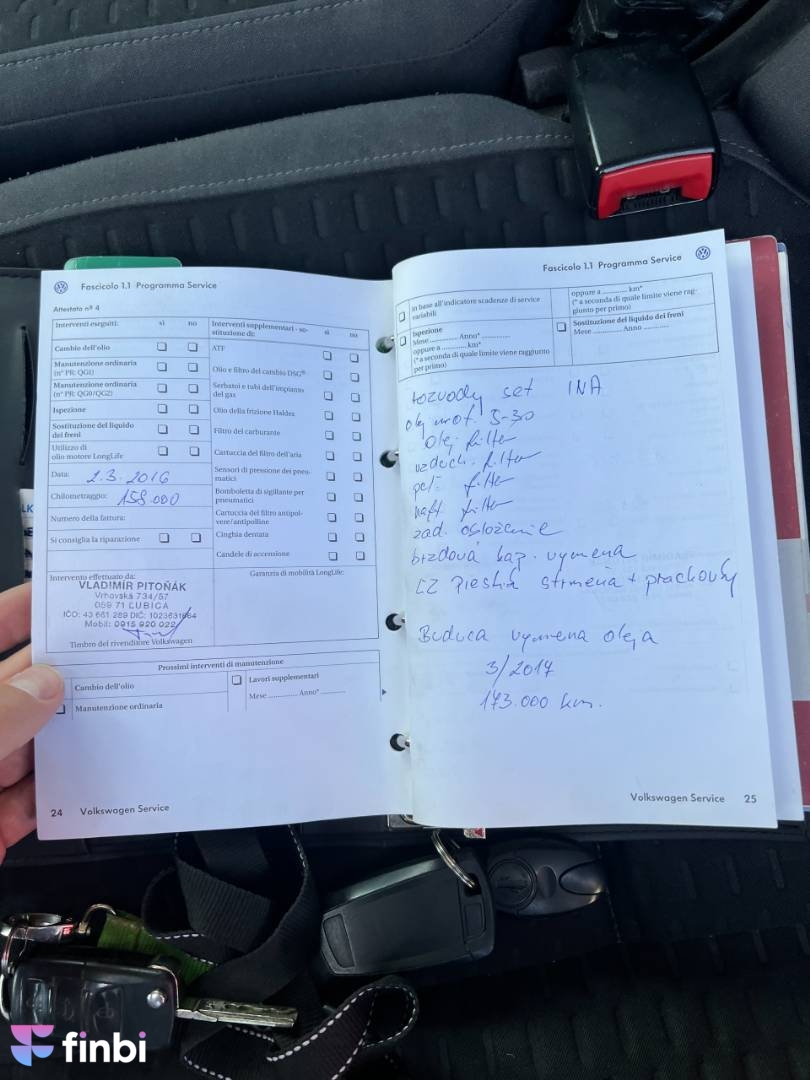 Fascicolo 1.1 Programma Service
Attestato nº 4
Interventi eseguiti: sì no
Cambio dell'olio
Manutenzione ordinaria
(nº PR: QG1)
Manutenzione ordinaria
(nº PR: QG0/QG2)
Ispezione
Sostituzione del liquido
dei freni
Utilizzo di
olio motore LongLife
Data: 2.3.2016
Chilometraggio: 158.000
Numero della fattura:
Si consiglia la riparazione
Interventi supplementari - so-
stituzione di: sì no
ATF
Olio e filtro del cambio DSG®
Serbatoi e tubi dell'impianto
del gas
Olio della frizione Haldex
Filtro del carburante
Cartuccia del filtro dell'aria
Sensori di pressione dei pneu-
matici
Bomboletta di sigillante per
pneumatici
Cartuccia del filtro antipol-
vere/antipolline
Cinghia dentata
Candele di accensione
Intervento effettuato da:
VLADIMÍR PITOŇÁK
Vrbovská 734/57
059 71 ĽUBICA
IČO: 43 661 289 DIČ:
Mobil: 0915 920 022
Timbro del rivenditore Volkswagen
Garanzia di mobilità LongLife:
Prossimi interventi di manutenzione
Cambio dell'olio
Manutenzione ordinaria
Lavori supplementari
Mese ............ Anno* ............
24 Volkswagen Service
Fascicolo 1.1 Programma Service
in base all'indicatore scadenze di service
variabili
Ispezione
Mese ............ Anno* ............
oppure a ............ km*
(* a seconda di quale limite viene raggiunto
per primo)
oppure a ............ km*
(* a seconda di quale limite viene rag-
giunto per primo)
Sostituzione del liquido dei freni
Mese ............ Anno ............
rozvody set INA
olej mot. 5-30
olej. filter
vzduch. filter
pel. filter
naft. filter
zad. osloženie
brzdová kap. vymena
LZ Piestna strmeňa + prachovky
Buduca vymena oleja
3/2017
173.000 km.
Volkswagen Service 25
finbi